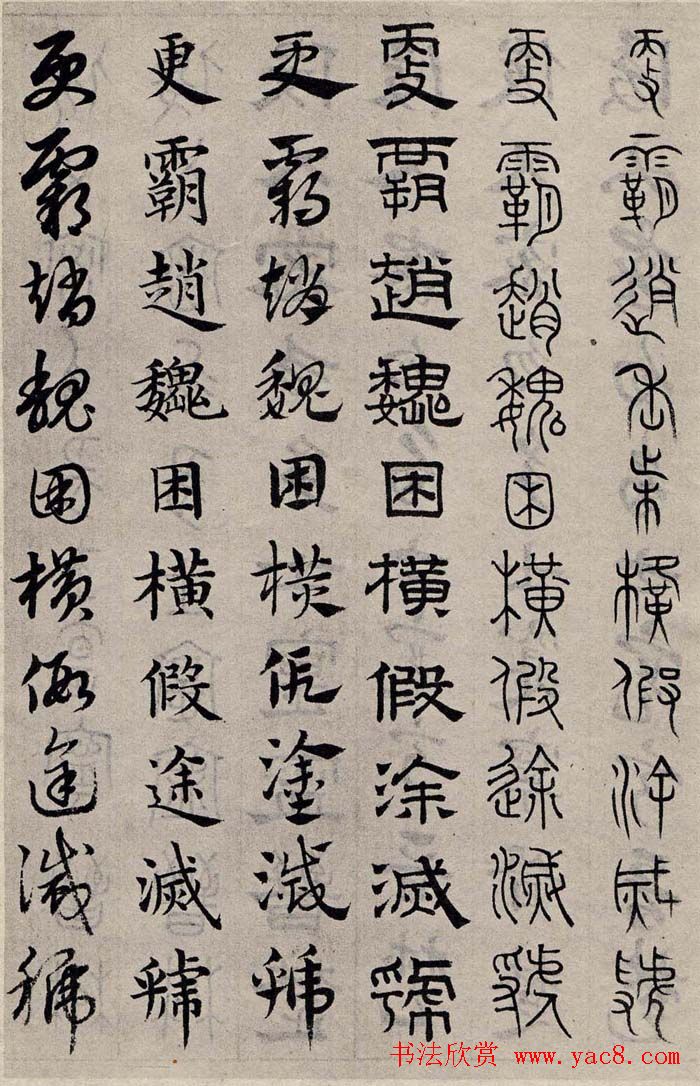 更霸趙魏困橫假涂烕虢
更霸趙魏困橫假途滅虢
更霸趙魏困橫假涂滅虢
更霸趙魏困橫假塗滅虢
更霸趙魏困橫假途滅虢
更霸趙魏困橫假途滅虢
书法欣赏 www.yac8.com